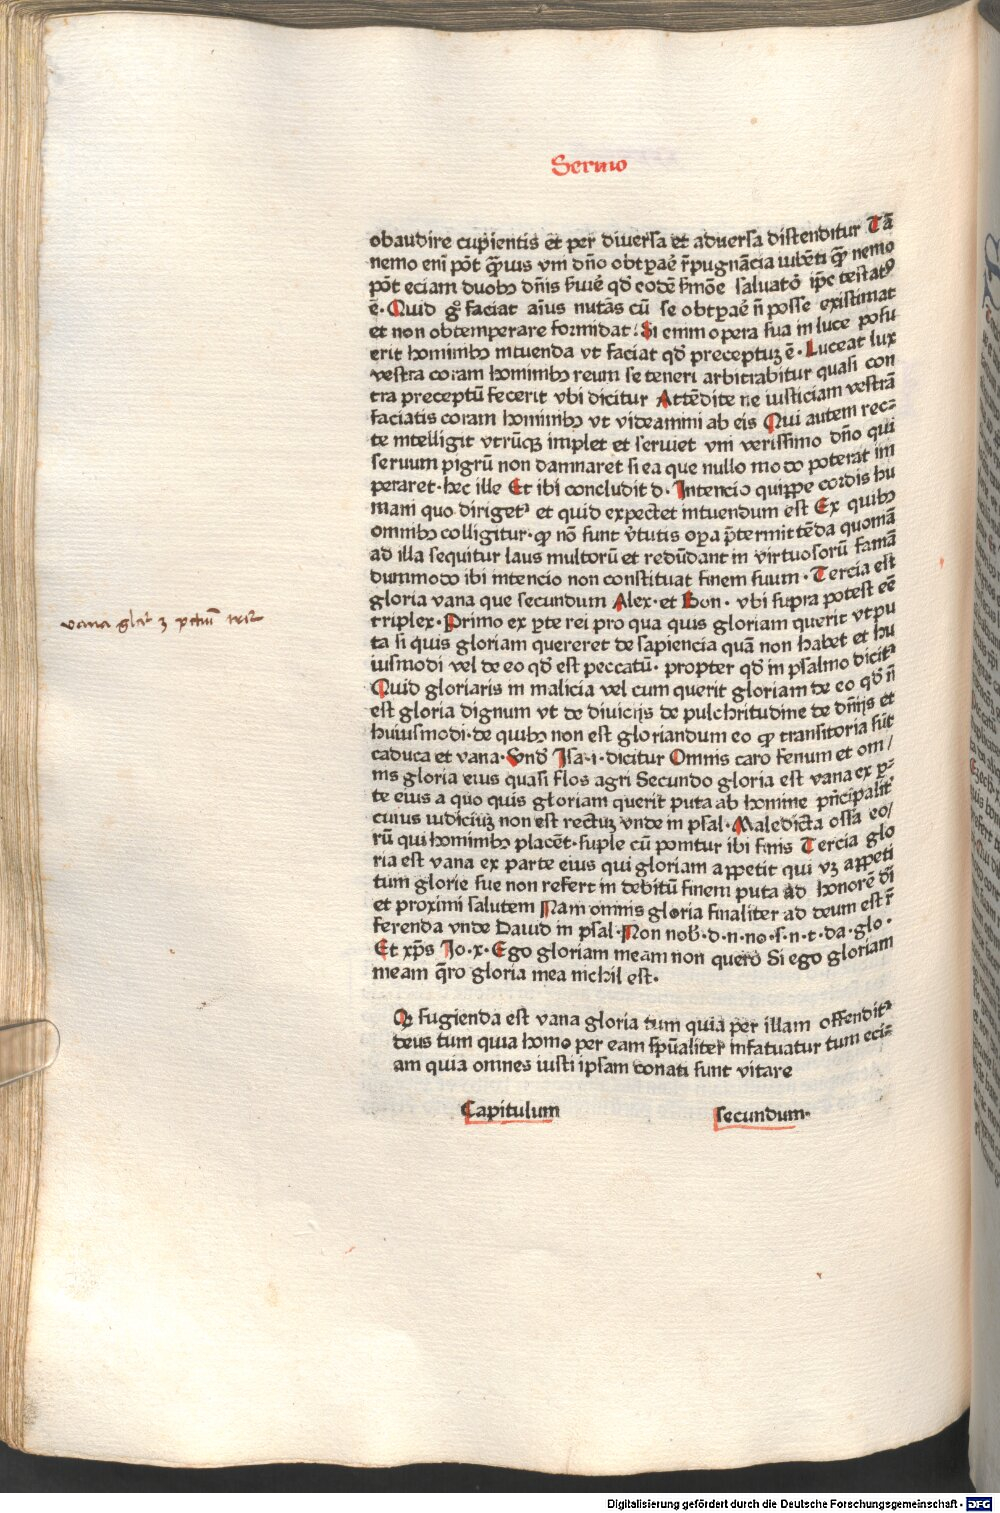 Sermo
obaudire cupientis et per diuersa et aduersa distenditur Tā
nemo eni pōt quāuis vni dn̄o obtꝑaē rēpugnācia iubēti qm̄ nemo
pōt eciam duobꝫ dn̄is ẜuiē qd̓ eodē ẜmōe saluatō ip̄e testatꝰ
ē· Quid gͦ faciat aīus nutās cū se obtꝑaē n̄ posse existimat
et non obtemperare formidat: Si enim opera sua in luce posu
erit hominibꝫ intuenda vt faciat qd̓ preceptuꝫ ē· Luceat lux
vestra coram hominibꝫ reum se teneri arbitrabitur quasi con
tra preceptū fecerit vbi dicitur Attēdite ne iusticiam vestrā
faciatis coram hominibꝫ vt videamini ab eis Qui autem rec⸗
te intelligit vtrūqꝫ implet et seruiet vni verissimo dn̄o qui
seruum pigrū non damnaret si ea que nullo modo poterat im
peraret· hec ille Et ibi concludit d· Intencio quippe cordis hu
mani quo dirigetꝛ et quid expectet intuendum est Ex quibꝫ
omnibꝫ colligitur· ꝙ nō sunt v̓tutis oꝑa p̄termittēda quoniā
ad illa sequitur laus multorū et redūdant in virtuosorū famā
dummodo ibi intencio non constituat finem suum· Tercia est
gloria vana que secundum Alex· et Bon· vbi supra potest eē
triplex· Primo ex ꝑte rei pro qua quis gloriam querit vtpu
ta si quis gloriam quereret de sapiencia quā non habet et hu
iusmodi vel de eo qd̓ est peccatū· propter qd̓ in psalmo dicitꝛ
Quid gloriaris in malicia vel cum querit gloriam de eo qd̓ n̄
est gloria dignum vt de diuicijs de pulchritudine de dn̄ijs et
huiusmodi· de quibꝫ non est gloriandum eo ꝙ transitoria sūt
caduca et vana· Vnd̓ Isa·i· dicitur Omnis caro fenum et om/
nis gloria eius quasi flos agri Secundo gloria est vana ex ꝑ⸗
te eius a quo quis gloriam querit puta ab homine pn̄cipalit̓
cuius iudiciuꝫ non est rectuꝫ vnde in psal· Maledicta ossa eo/
rū qui hominibꝫ placēt· suple cū ponitur ibi finis Tercia glo
ria est vana ex parte eius qui gloriam appetit qui vꝫ appeti
tum glorie sue non refert in debitū finem puta ad honorē di̅
et proximi salutem Nam omnis gloria finaliter ad deum est r̄
ferenda vnde Dauid in psal· Non nob̓·d·n·no·s·n·t·da·glo·
Et xp̄s Io·x· Ego gloriam meam non quero Si ego gloriam
meam q̄ro gloria mea nichil est·
vana glꝛ̅ia ꝫ pctum̅ tꝛiꝛ
Q fugienda est vana gloria tum quia per illam offenditꝛ
deus tum quia homo per eam sp̄ualiter infatuatur tum eci⸗
am quia omnes iusti ipsam conati sunt vitare
Capitulum secundum·
Digitalisierung gefördert durch die Deutsche Forschungsgemeinschaft - DFG